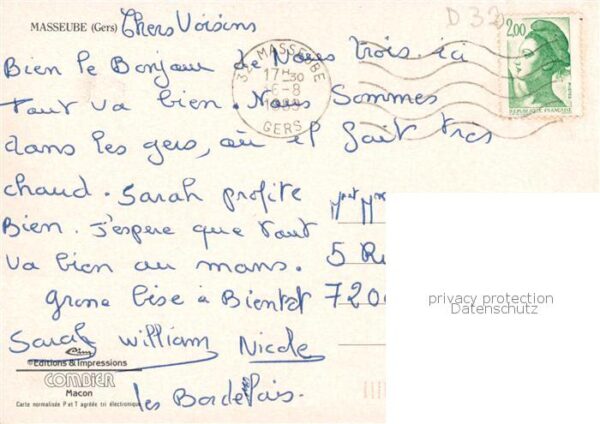 MASSEUBE (Gers)
Chers Voisins
D 32
2,00
REPUBLIQUE FRANÇAISE
32 MASSEUBE
17H30
6-8
GERS
Bien le Bonjour de Nous trois. ici
tout va bien. Nous Sommes
dans les gers, où il fait tres
chaud. Sarah profite
Bien. J'espere que tout
va bien au mans.
grosse bise à Bientot
Sarah William Nicole
les Bordelais.
Mr et Mme
5 Ru
7200
privacy protection
Datenschutz
©Editions & Impressions
COMBIER
Macon
Carte normalisée P et T agréée tri électronique